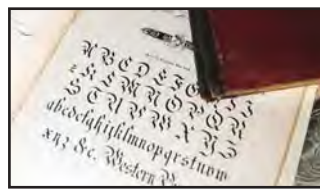 A B C D E F G
K L M N O P Q R
S T U V W X Y Z
abcdefghijklmnopqrstuvw
xyz &c. Western